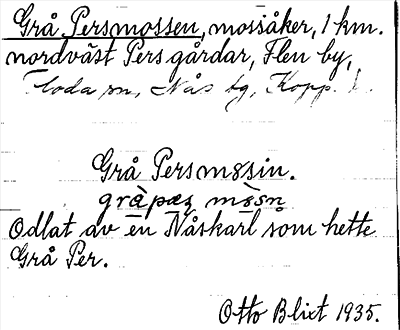 Grå Persmossen, mossåker, 1 km.
nordväst Persgårdar, Flen by,
Floda sn, Nås tg, Kopp. l.
Grå Persmɷsin.
gràpæʂ mɷ̀sn̥
Odlat av en Nåskarl som hette
Grå Per.
Otto Blixt 1935.